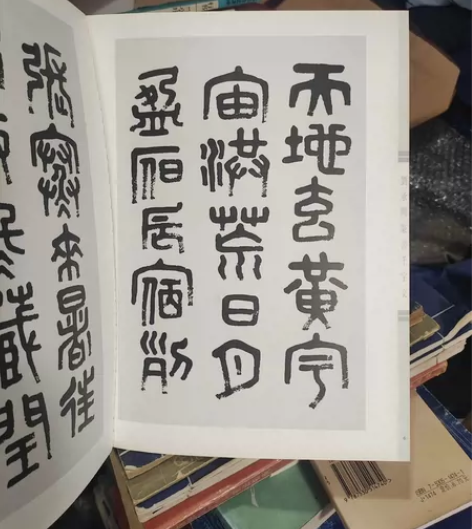 天地玄黃宇
宙洪荒日月
盈昃辰宿列
張寒來暑往
冬藏閏